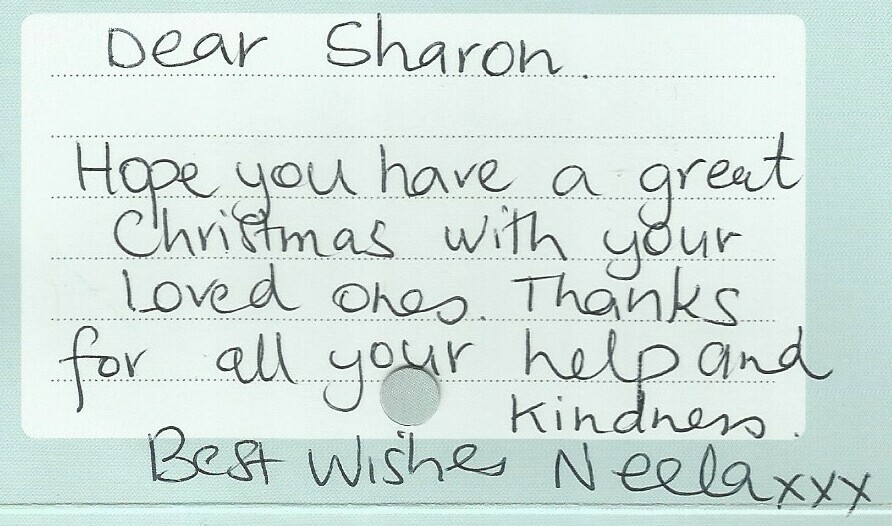 Dear Sharon.
Hope you have a great
Christmas with your
loved ones. Thanks
for all your help and
kindness.
Best Wishes Neela xxx